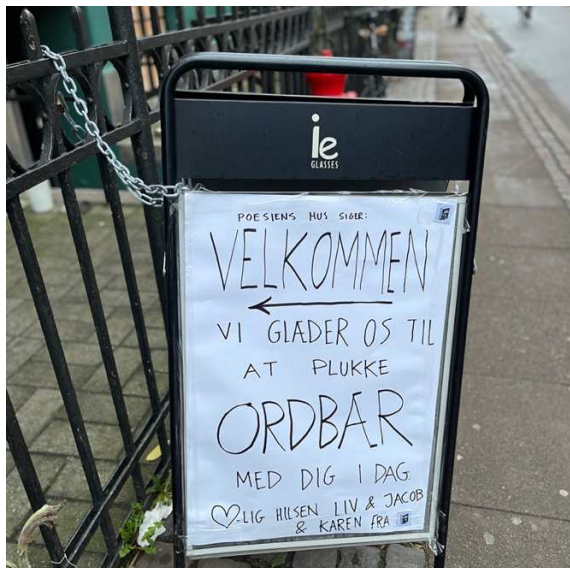 ie
GLASSES
POESIENS HUS SIGER:
VELKOMMEN
VI GLÆDER OS TIL
AT PLUKKE
ORDBÆR
MED DIG I DAG.
♡-LIG HILSEN LIV & JACOB
& KAREN FRA